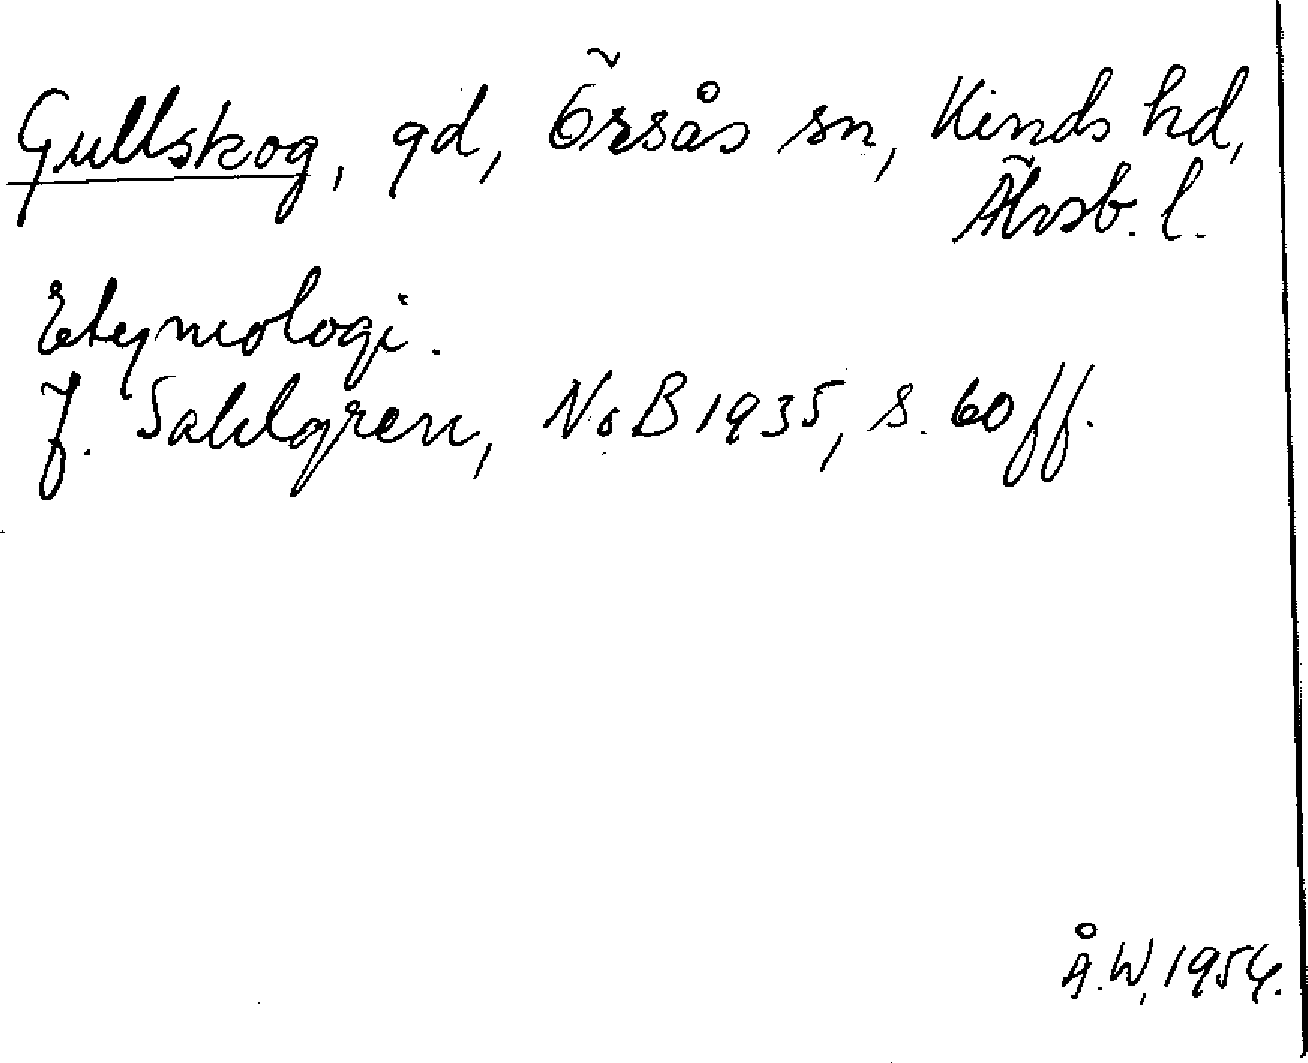 Gullskog, gd, Örsås sn, Kinds hd,
Älvsb. l.
Etymologi.
J. Sahlgren, NoB 1935, s. 60 ff.
Å.W. 1954.